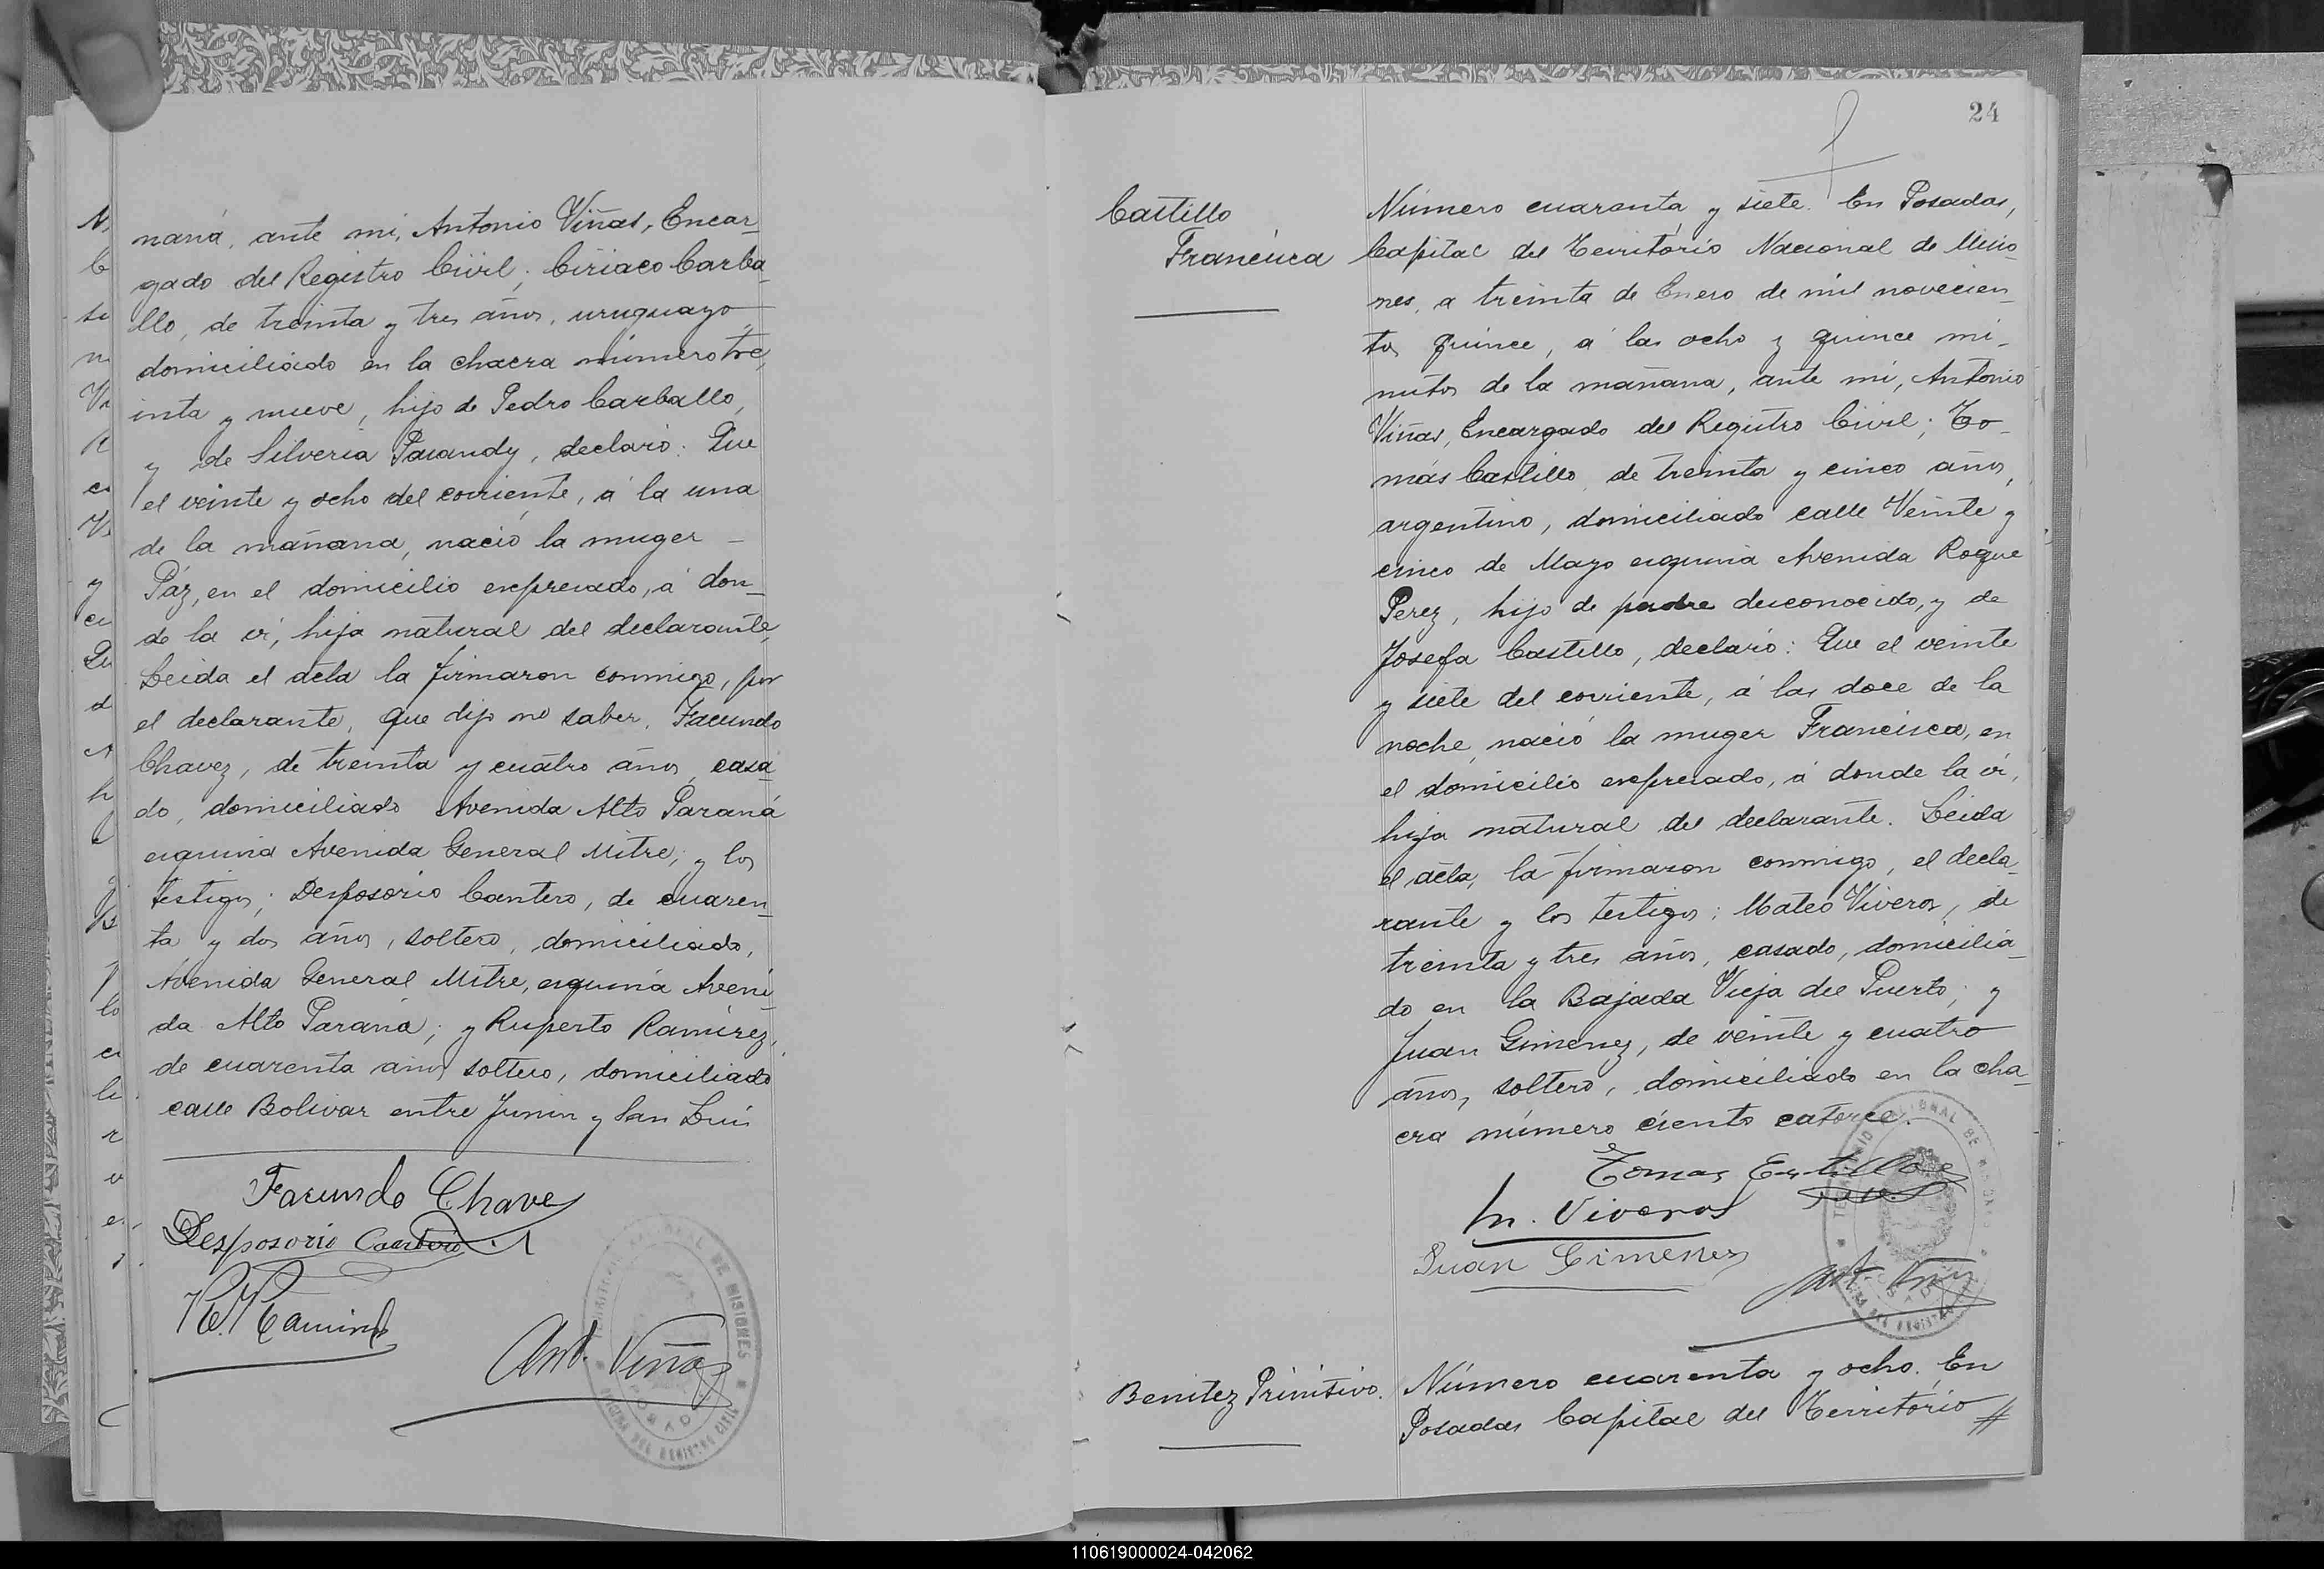 naná, ante mi, Antonio Viñas, Encar-
gado del Registro Civil; Ciriaco Carba-
llo, de treinta y tres años, uruguayo,
domiciliado en la chacra número tre,
inta y nueve, hijo de Pedro Carballo,
y de Silveria Parandy, declaró: Que
el veinte y ocho del corriente, á la una
de la mañana, nació la muger -
Páz, en el domicilio expresado, á don-
de la ví, hija natural del declarante,
Leida el acta la firmaron conmigo, por
el declarante, que dijo no saber, Facundo
Chavez, de treinta y cuatro años, casa-
do, domiciliado Avenida Alto Paraná
esquina Avenida General Mitre; y los
testigos; Desposorio Cantero, de cuaren-
ta y dos años, soltero, domiciliado,
Avenida General Mitre, esquina Aveni
da Alto Paraná; y Ruperto Ramirez,
de cuarenta años soltero, domiciliado
calle Bolivar entre Junin y San Luis
Facundo Chavez
Desposorio Cantero
R. Ramirez
Ant. Viñas
24
Castillo
Francisca
Número cuarenta y siete. En Posadas,
Capital del Territorio Nacional de Misio-
nes, a treinta de Enero de mil novecien-
tos quince, á las ocho y quince mi-
nutos de la mañana, ante mi, Antonio
Viñas, Encargado del Registro Civil; To-
más Castillo, de treinta y cinco años,
argentino, domiciliado calle Veinte y
cinco de Mayo esquina Avenida Roque
Perez, hijo de padre desconocido, y de
Josefa Castillo, declaró: Que el veinte
y siete del corriente, á las doce de la
noche, nació la muger Francisca, en
el domicilio expresado, á donde la ví,
hija natural del declarante. Leida
el acta, la firmaron conmigo, el decla-
rante y los testigos; Mateo Viveros, de
treinta y tres años, casado, domicilia-
do en la Bajada Vieja del Puerto; y
Juan Gimenez, de veinte y cuatro
años, soltero, domiciliado en la cha-
cra número ciento catorce.
Tomas Castillo
M. Viveros
Juan Gimenez
Ant. Viñas
Benitez Primitivo.
Número cuarenta y ocho. En
Posadas Capital del Territorio #
110619000024-042062